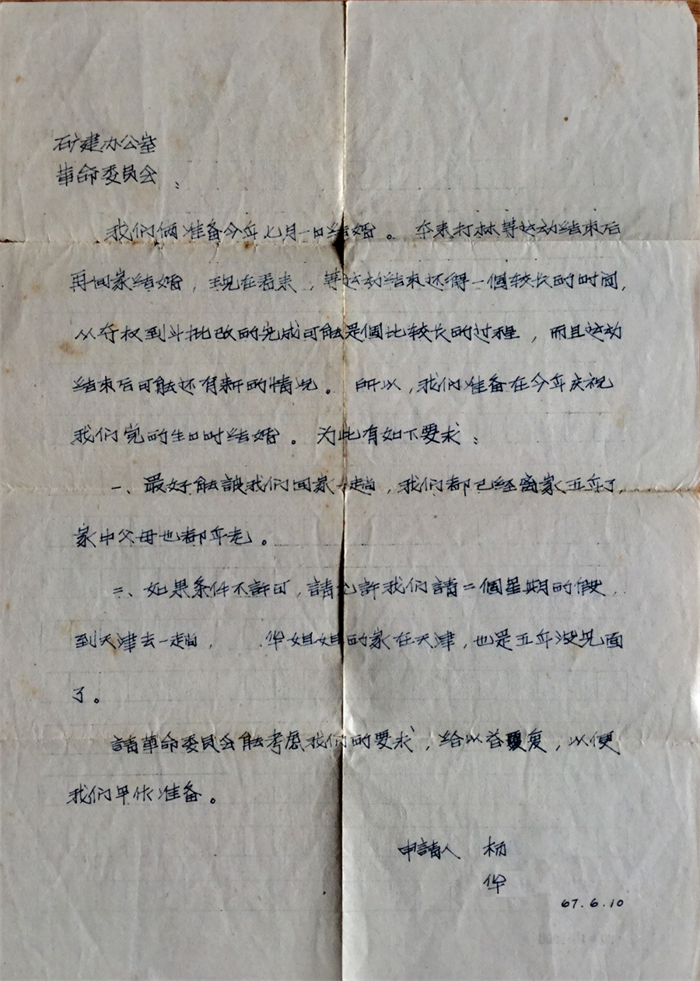 矿建办公室
革命委员会：
我们俩准备今年七月一日结婚。本来打林等运动结束后
再回家结婚，现在看来，等运动结束还得一個较长的时间，
从夺权到斗批改的完成可能是個比较长的过程，而且运动
结束后可能还有新的情况。所以，我们准备在今年庆祝
我们党的生日时结婚。为此有如下要求：
一、最好能让我们回家一趟，我们都已经离家五年了，
家中父母也都年老。
二、如果条件不許可，請允許我们請二個星期的假，
到天津去一趟，华姐姐的家在天津，也是五年没见面
了。
請革命委员会能考虑我们的要求，给以答复，以便
我们早作准备。
申請人 杨
华
67.6.10